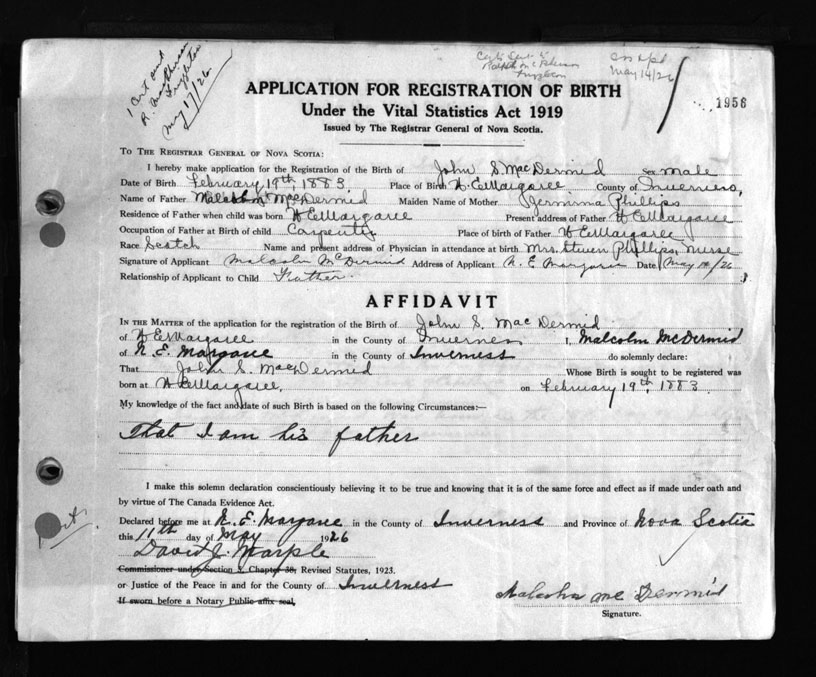 1 Cert and
May 17/26
May 14/26
1956
APPLICATION FOR REGISTRATION OF BIRTH
Under the Vital Statistics Act 1919
Issued by The Registrar General of Nova Scotia.
TO THE REGISTRAR GENERAL OF NOVA SCOTIA:
I hereby make application for the Registration of the Birth of John S. MacDermid Sex Male
Date of Birth February 19th, 1883 Place of Birth N E Margaree County of Inverness,
Name of Father Malcolm MacDermid Maiden Name of Mother Jermima Phillips
Residence of Father when child was born N E Margaree Present address of Father N E Margaree
Occupation of Father at Birth of child Place of birth of Father N E Margaree
Race Scotch Name and present address of Physician in attendance at birth Mrs. Phillips, Nurse
Signature of Applicant Malcolm McDermid Address of Applicant N. E Margaree Date May /26
Relationship of Applicant to Child Father.
AFFIDAVIT
IN THE MATTER of the application for the registration of the Birth of John S. MacDermid
of N E Margaree in the County of Inverness I, Malcolm McDermid
of N. E. Margaree in the County of Inverness do solemnly declare:
That John S. MacDermid Whose Birth is sought to be registered was
born at N E Margaree, on February 19th, 1883.
My knowledge of the fact and date of such Birth is based on the following Circumstances:—
That I am his father
I make this solemn declaration conscientiously believing it to be true and knowing that it is of the same force and effect as if made under oath and
by virtue of The Canada Evidence Act.
Declared before me at N. E. Margaree in the County of Inverness and Province of Nova Scotia
this 11th day of May 1926
David C. Marple
Commissioner under Section 2, Chapter 38, Revised Statutes, 1923.
or Justice of the Peace in and for the County of Inverness
If sworn before a Notary Public affix seal,
Malcolm McDermid
Signature.